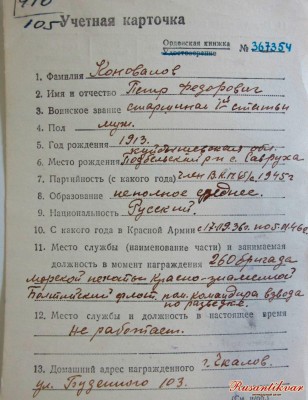 105
Учетная карточка
Орденская книжка
Удостоверение № 367354
1. Фамилия Коновалов
2. Имя и отчество Петр Федорович
3. Воинское звание старшина 1ой статьи
4. Пол муж.
5. Год рождения 1913.
Куйбышевская обл.
6. Место рождения Подбельский р-н с. Савруха
7. Партийность (с какого года) член ВКП(б) с 1945 г
8. Образование неполное среднее.
9. Национальность Русский.
10. С какого года в Красной Армии с
11. Место службы (наименование части) и занимаемая
должность в момент награждения 260 бригада
морской пехоты Красно-знаменной
Балтийский флот, пом. командира взвода
по разведке.
12. Место службы и должность в настоящее время
не работает.
13. Домашний адрес награжденного г. Чкалов.
ул. Буденного 103.
Rusantikvar